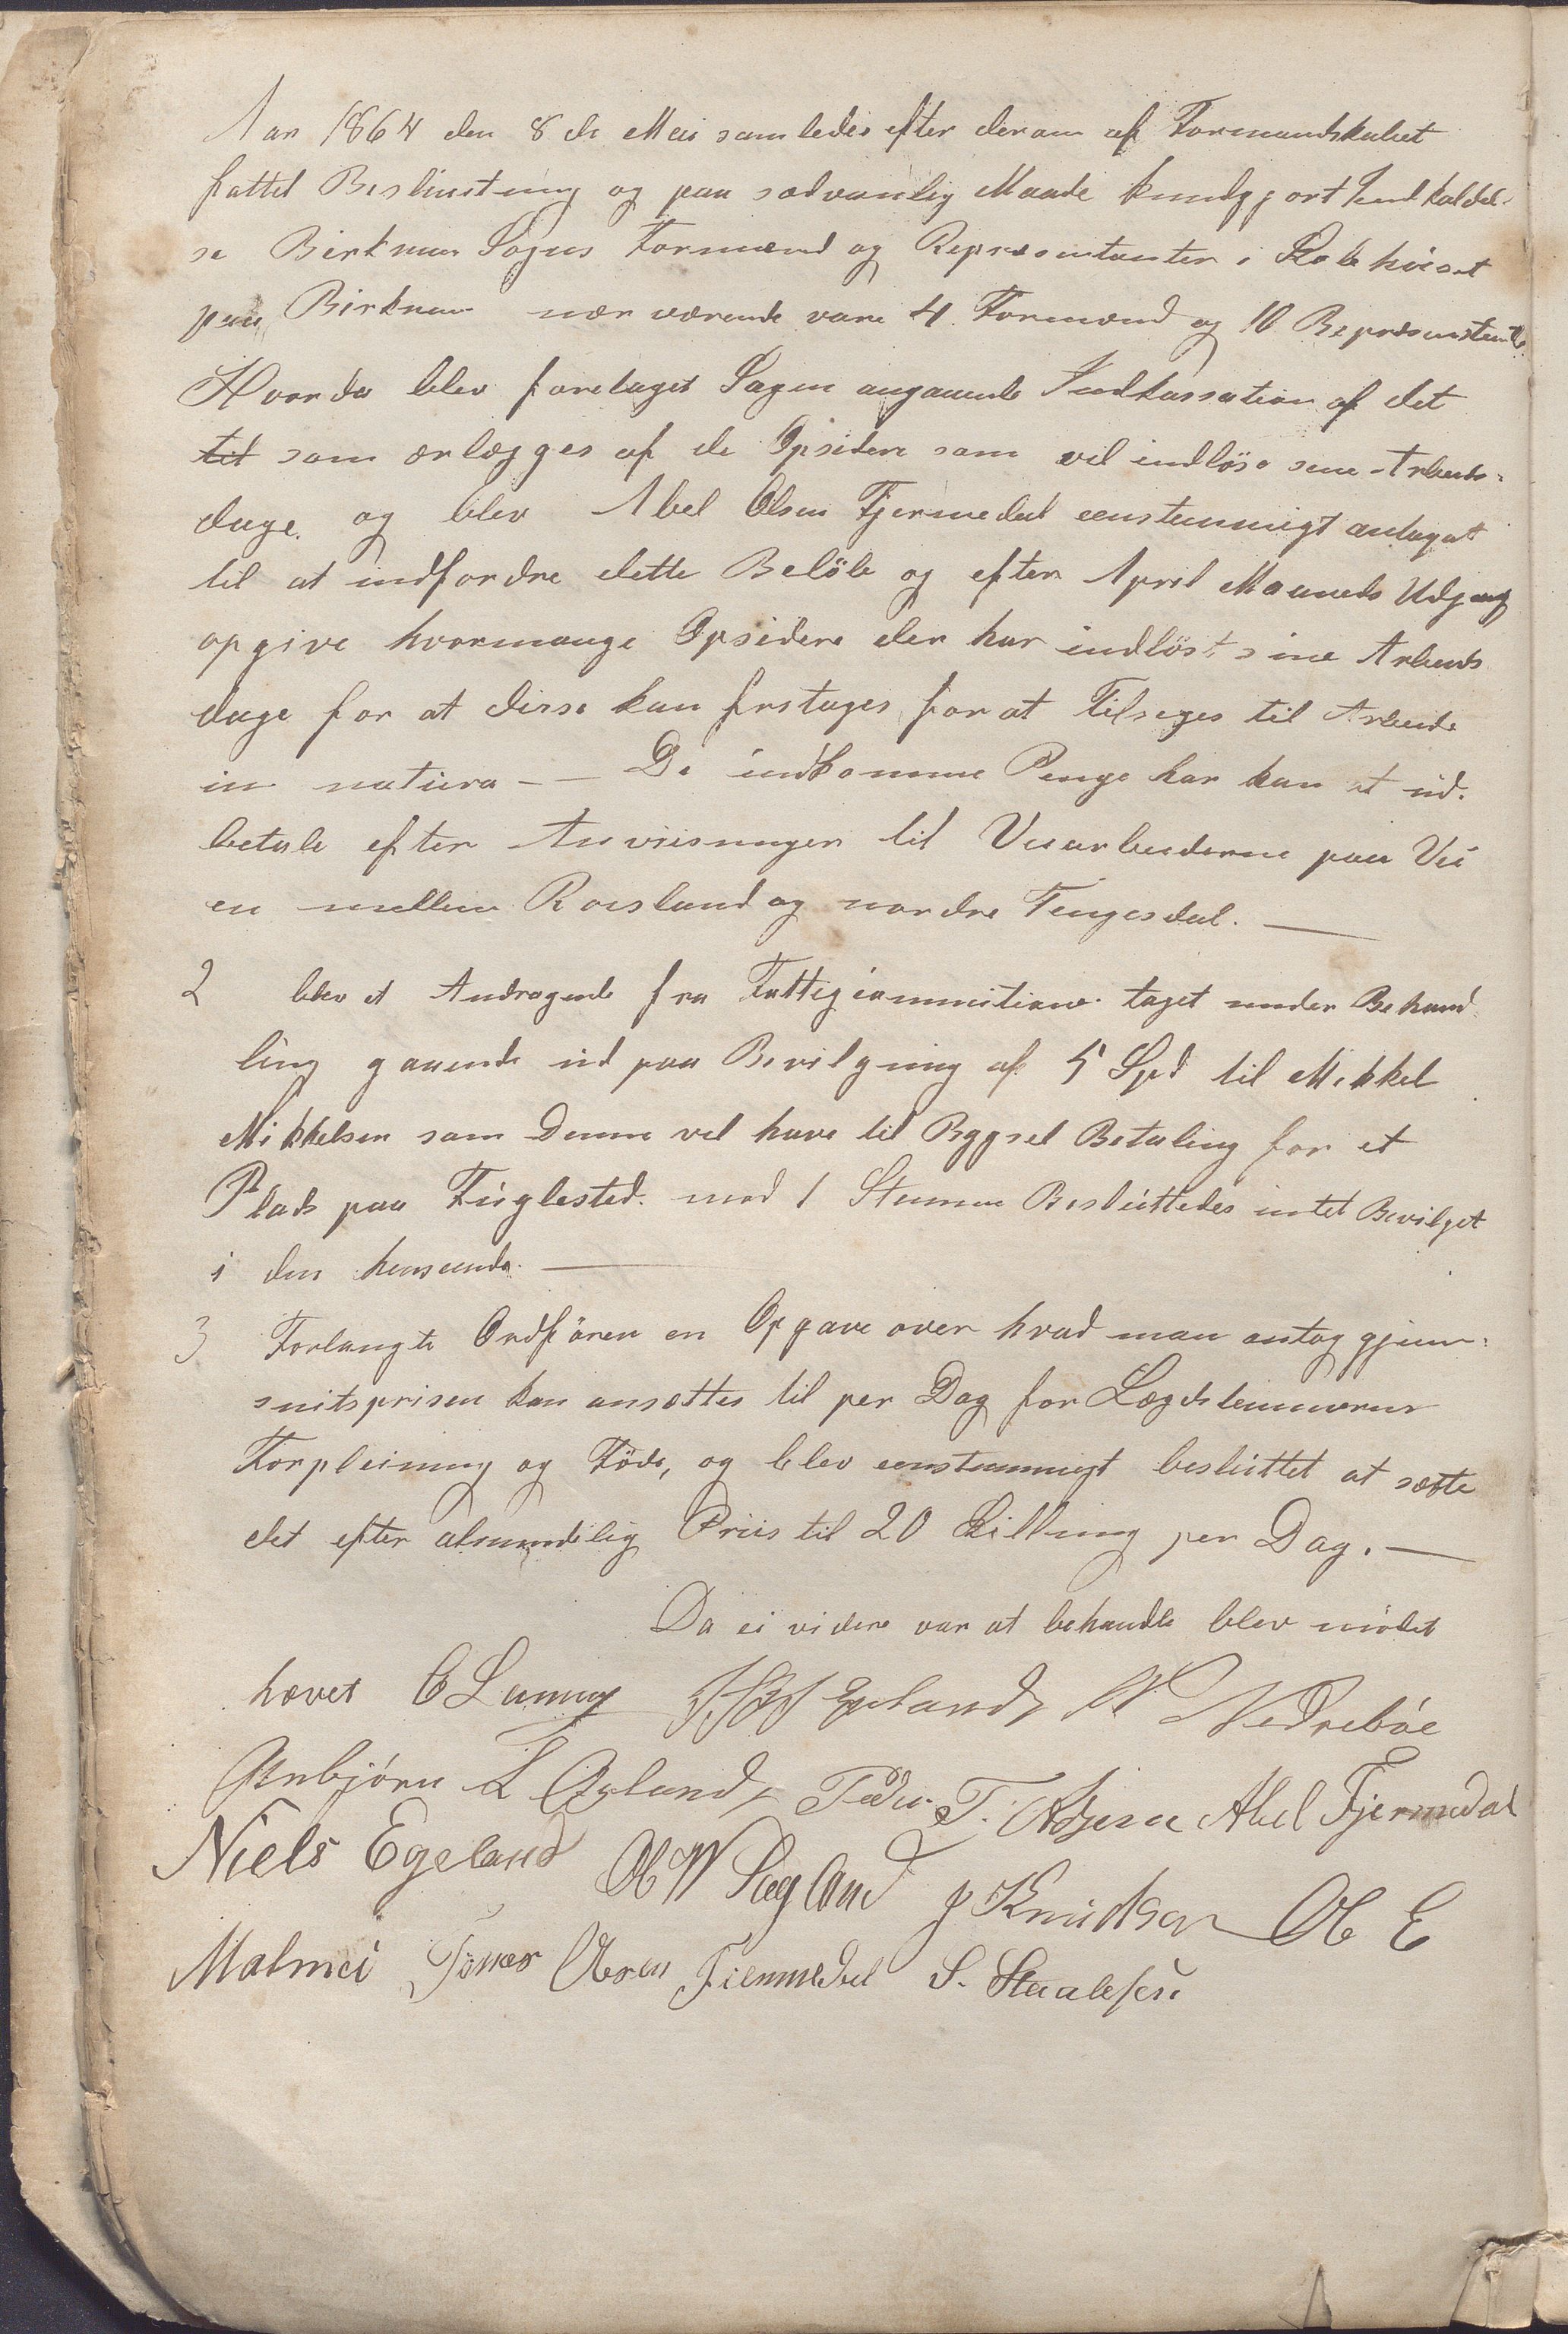 Aar 1864 den 8de Mai samledes efter derom af Formandskabet
fattet Beslustning og paa sædvanlig Maade kundgjort Indkaldel-
se Birkrem Sogns Formænd og Repræsentanter i Skolehuset
paa Birkrem nærværende vare 4 Formænd og 10 Repræsentanter
Hvorda blev foretaget Sagen angaaende Indkassation af det
til som ærlægges af de Opsidere som vil indløse sine Arbeids-
dage. og blev Abel Olsen Fjermedal eenstemmigt antaget
til at indfordre dette Beløb og efter April Maaneds Udgang
opgive hvormange Opsidere der har indløst sine Arbeids
dage for at disse kan fratages for at Tilsiges til Arbeide
in natura — De indkomne Penge har han at ud-
betale efter Anviisninger til Veiarbeiderne paa Vei
en mellem Roisland og nordre Tengesdal. —
2 blev et Andragende fra Fattigcommitionen taget under Behand
ling gaaende ud paa Bevilgning af 5 Spd til Mikkel
Mikkelsen som Denne vil have til Bygsel Betaling for et
Plads paa Fuglested. mod 1 Stemme Besluttedes intet Bevilget
i den henseende. —
3 Forlangte Ordføreren en Opgave over hvad man antog gjenn-
snitsprisen kan ansættes til per Dag for Lægdslemmernes
Forpleining og Føde, og blev eenstemmigt besluttet at sætte
det efter almindelig Priis til 20 Skilling per Dag. —
Da ei videre var at behandle blev mødet
hævet C Lunning Egeland N Nedrebøe
Asbjørn L Øgland Peder T. Abel Fjermedal
Niels Egeland Ole W Sagland J Knudsen Ole E
Malmei Tønnes Olsen Fiermedal S. Staalesen